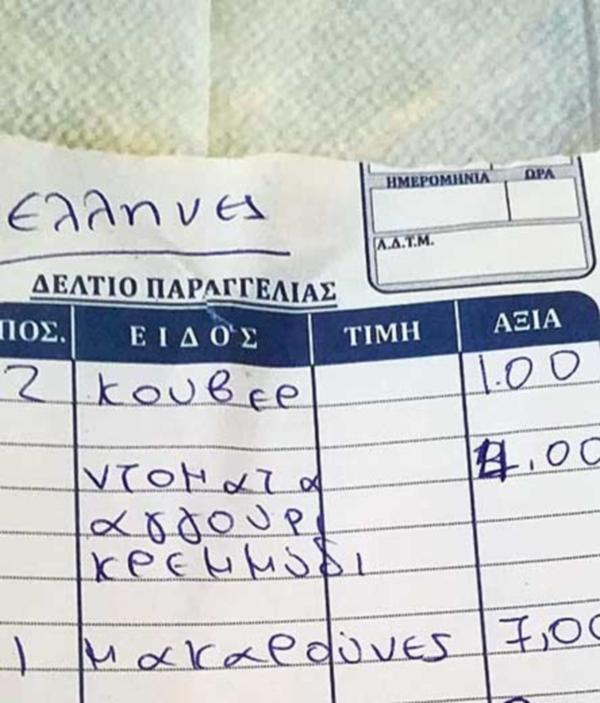 ΗΜΕΡΟΜΗΝΙΑ ΩΡΑ
ελληνες
Α.Δ.Τ.Μ.
ΔΕΛΤΙΟ ΠΑΡΑΓΓΕΛΙΑΣ
ΠΟΣ. ΕΙΔΟΣ ΤΙΜΗ ΑΞΙΑ
2 κουβερ 1.00
ντοματα 4.00
αγγουρι
κρεμμυδι
1 μακαρούνες 7,00